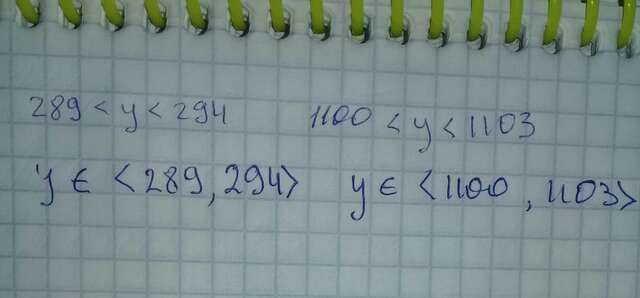 289 < y < 294 1100 < y < 1103
y ∈ <289, 294> y ∈ <1100, 1103>